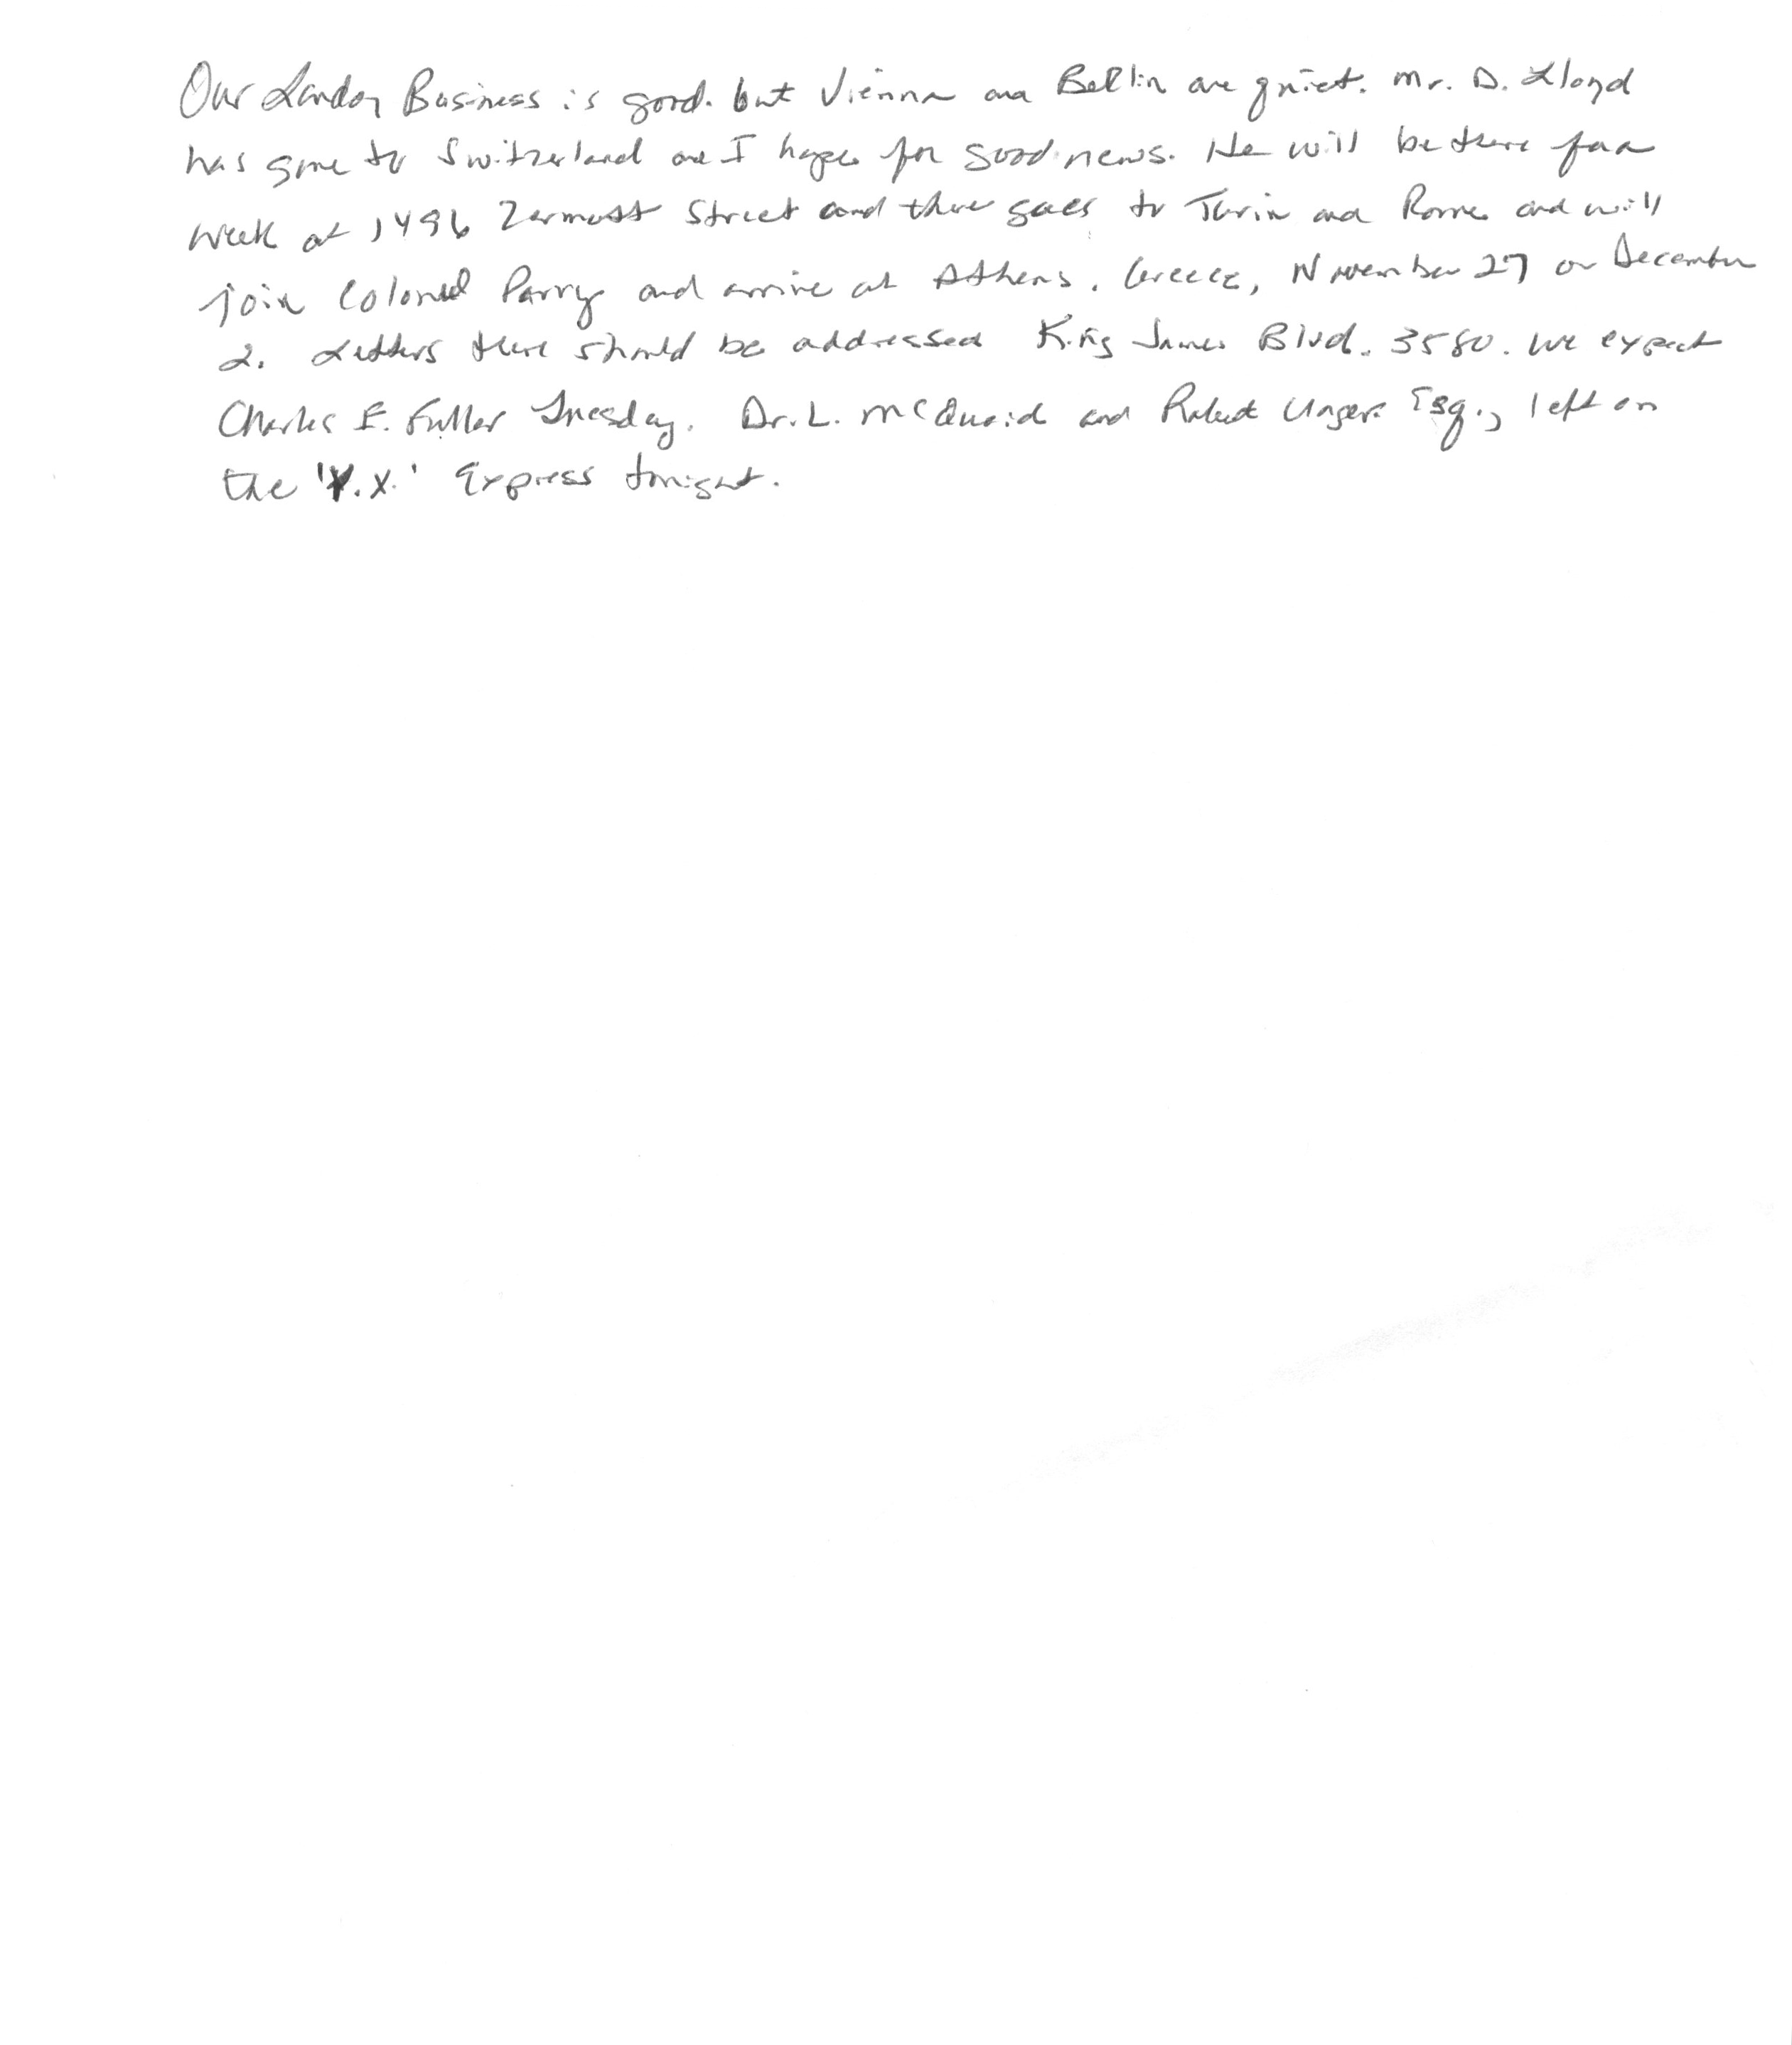 Our London Business is good. but Vienna and Berlin are quiet. Mr. D. Lloyd
has gone to Switzerland and I hope for good news. He will be there for a
week at 1496 Zermott Street and then goes to Turin and Rome and will
join Colonel Parry and arrive at Athens. Greece, November 27 or December
2. Letters there should be addressed King James Blvd. 3580. We expect
Charles E. Fuller Tuesday. Dr. L. McQuaid and Robert Unger. Esq., left on
the 'Y.X.' Express tonight.